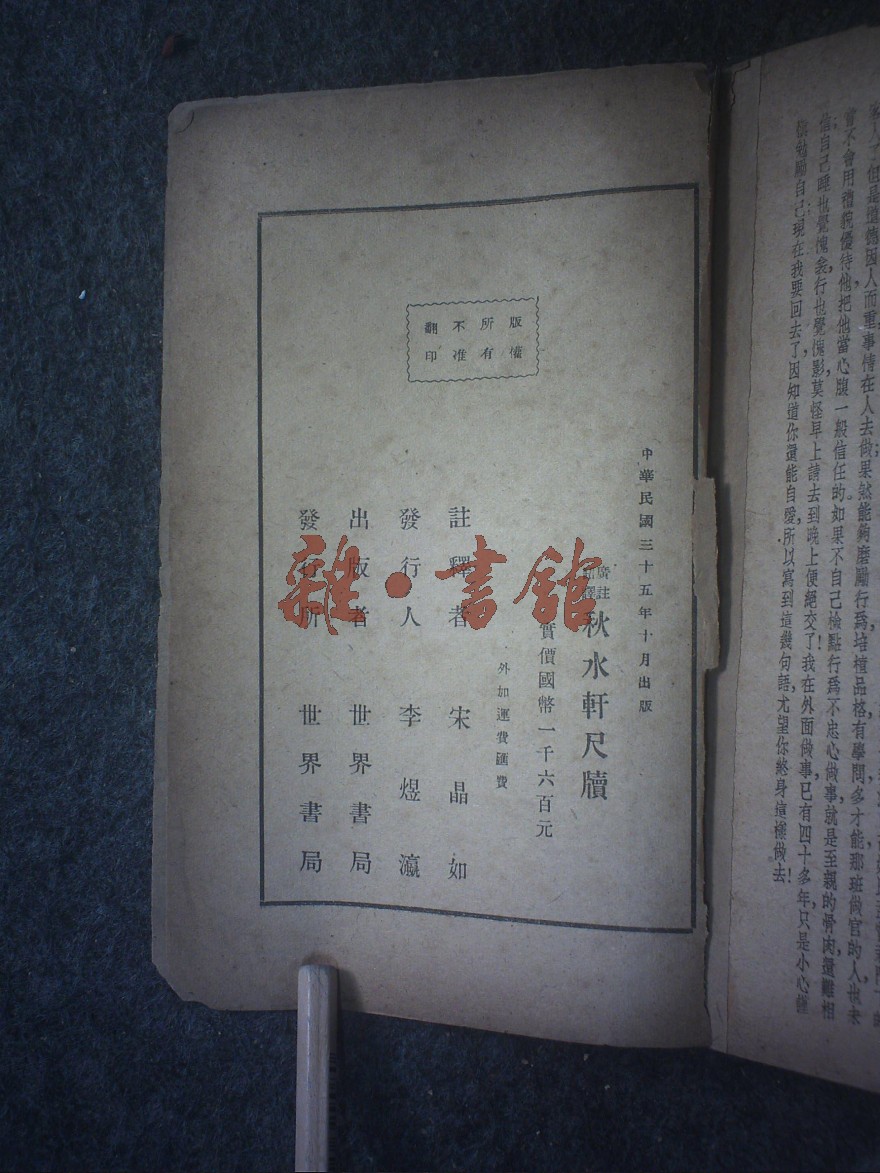 但是道德因人而重,事情在人去做;果然能夠磨勵行爲,培植品格,有學問,多才能,那班做官的人,也未
嘗不會用禮貌優待他,把他當心腹一般信任的。如果不自己檢點行爲,不忠心做事,就是至親的骨肉,還難相
信;自己睡也覺愧衾,行也覺愧影,莫怪早上請去,到晚上便絕交了!我在外面做事,已有四十多年,只是小心謹
慎,勉勵自己;現在我要回去了,因知道你還能自愛,所以寫到這幾句語,尤望你終身這樣做去!
中華民國三十五年十月出版
廣註
語譯
秋水軒尺牘
實價國幣一千六百元
外加運費匯費
註釋者 宋晶如
發行人 李煜瀛
出版者 世界書局
發行所 世界書局
版權
所有
不准
翻印
雜·書館